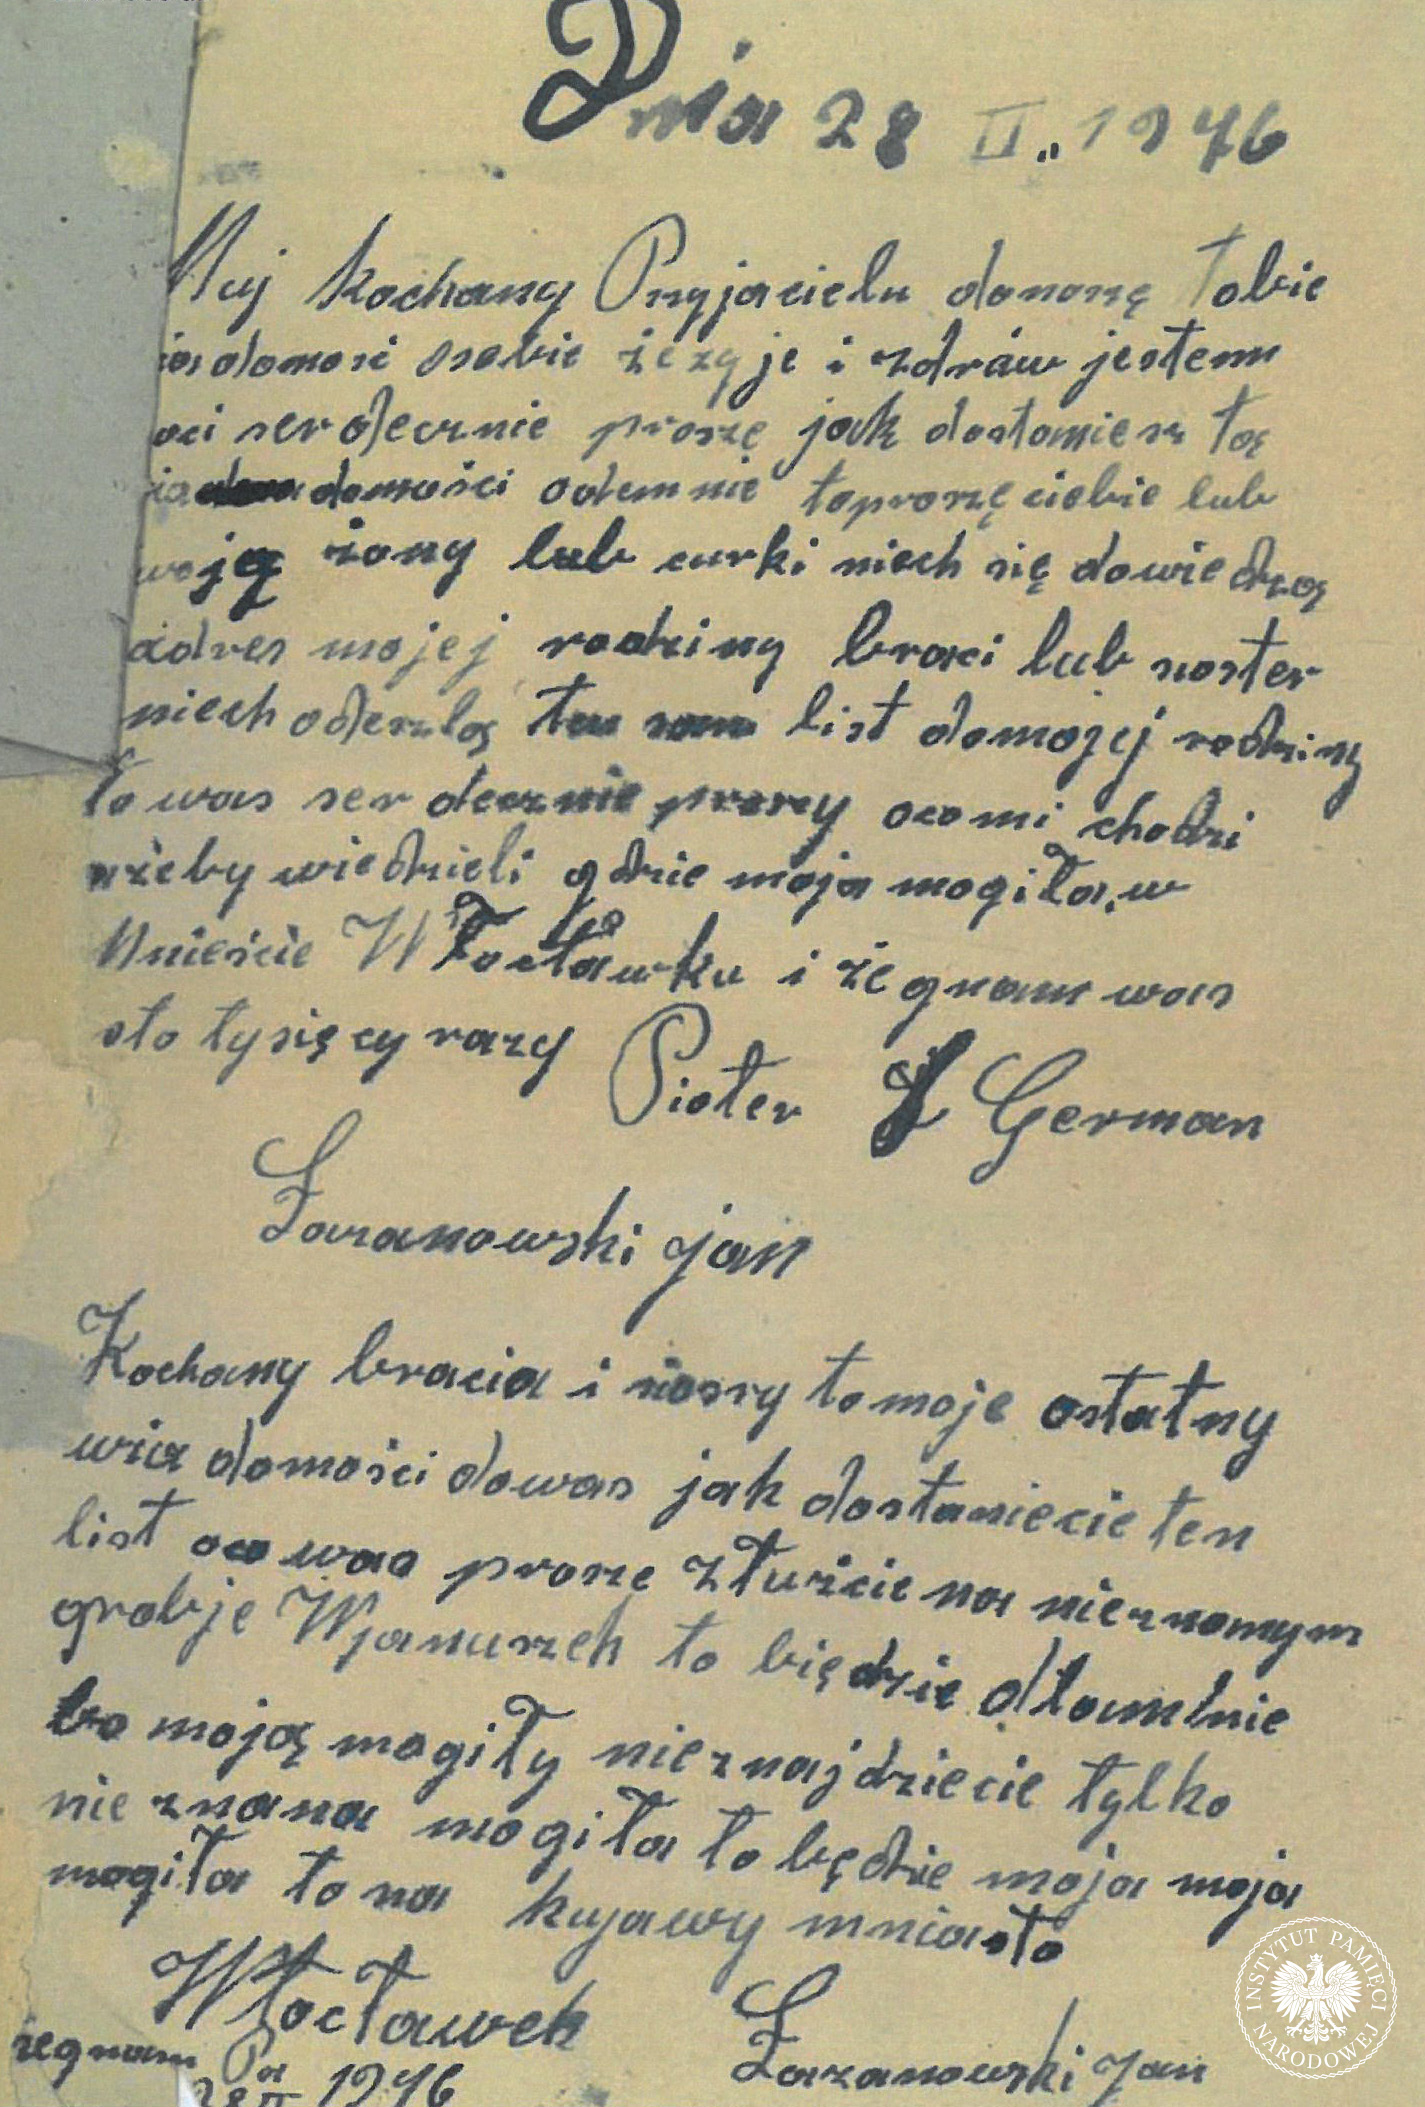 Dnia 28 II.. 1946
Muj kochany Przyjacielu donoszę Tobie
iadomosć osobie że zyje i zdrów jestem
oci serdecznie proszę jak dostaniesz tą
ia domości odemnie toproszę ciebie lub
woją żony lub curki niech się dowiedzą
adres mojej rodziny braci lub soster
niech oderzlą list domojej rodziny
to was serdecznie prorzy ocomi chodzi
użeby wiedzieli gdzie moja mogiła, w
Mnieście Włocławku i żegnam was
sto tysięcy razy Pioter German
Łazanowski jan
Kochany bracia i siosry to moje ostatny
wia domości dowas jak dostaniecie ten
list oco was prosze złuście na nieznanym
grobje Wjanuszek to biędzie dłaumlnie
bo moją mogiły nieznajdziecie tylko
nie znana mogiła to będzie moja moja
mogiła to na kujawy mniasto
Włocławek
Łazanowski jan
żegnam Pa
28 II 1946
INSTYTUT PAMIĘCI NARODOWEJ